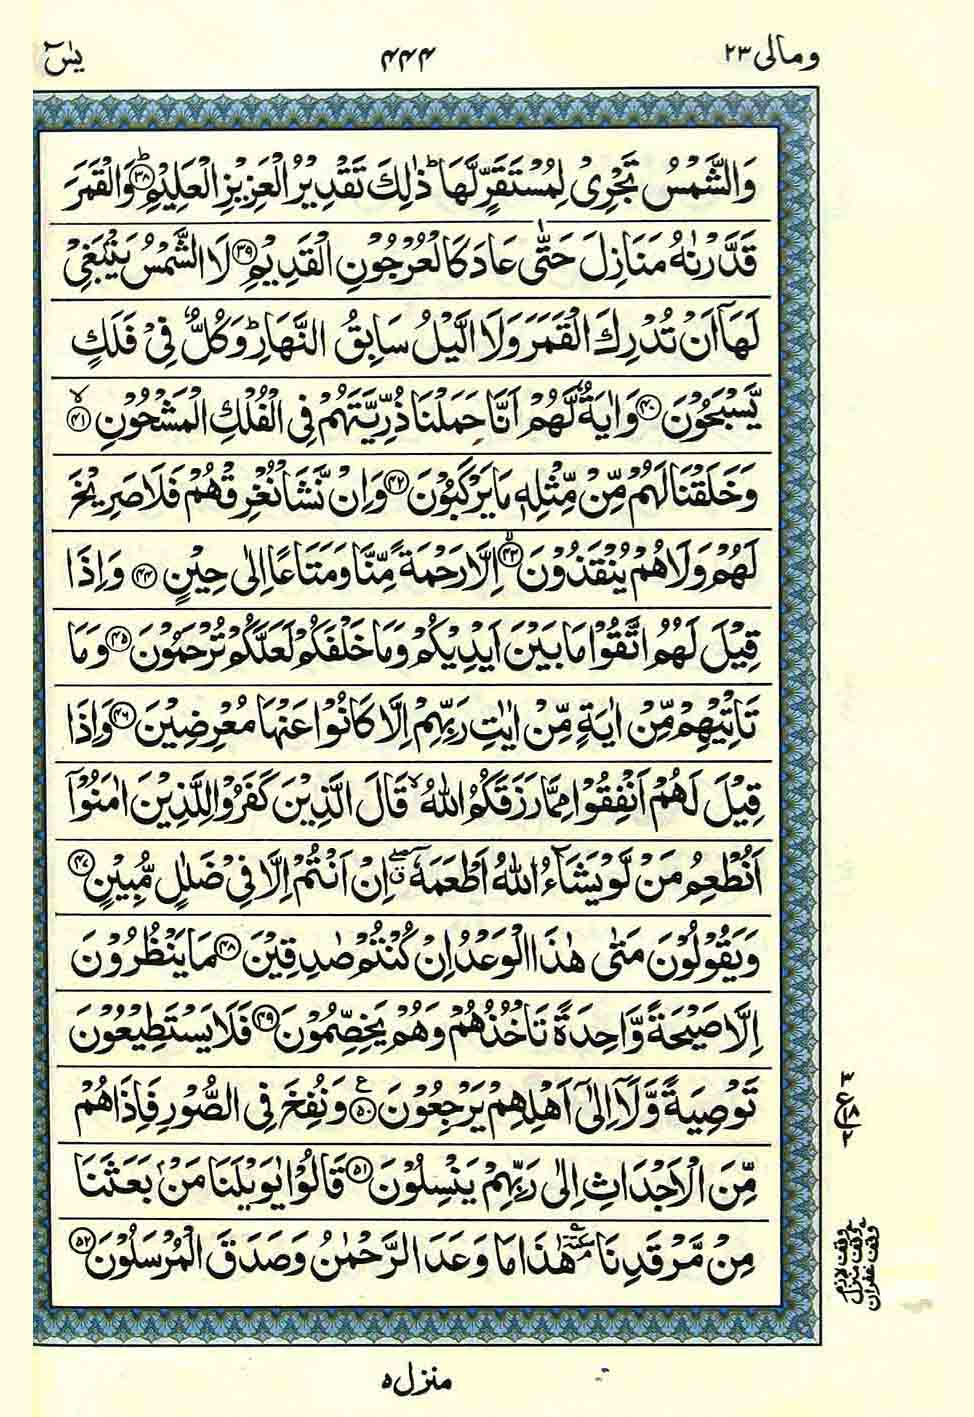 ومالی ٢٣
۴۴۴
یٰسٓ
وَالشَّمْسُ تَجْرِیْ لِمُسْتَقَرٍّ لَّهَا ؕ ذٰلِكَ تَقْدِیْرُ الْعَزِیْزِ الْعَلِیْمِ ؕ﴿۳۸﴾ وَالْقَمَرَ
قَدَّرْنٰهُ مَنَازِلَ حَتّٰی عَادَ كَالْعُرْجُوْنِ الْقَدِیْمِ ﴿۳۹﴾ لَا الشَّمْسُ یَنْۢبَغِیْ
لَهَاۤ اَنْ تُدْرِكَ الْقَمَرَ وَلَا الَّیْلُ سَابِقُ النَّهَارِ ؕ وَكُلٌّ فِیْ فَلَكٍ
یَّسْبَحُوْنَ ﴿۴۰﴾ وَاٰیَةٌ لَّهُمْ اَنَّا حَمَلْنَا ذُرِّیَّتَهُمْ فِی الْفُلْكِ الْمَشْحُوْنِ ﴿۴۱﴾ۙ
وَخَلَقْنَا لَهُمْ مِّنْ مِّثْلِهٖ مَا یَرْكَبُوْنَ ﴿۴۲﴾ وَاِنْ نَّشَاْ نُغْرِقْهُمْ فَلَا صَرِیْخَ
لَهُمْ وَلَا هُمْ یُنْقَذُوْنَ ﴿۴۳﴾ۙ اِلَّا رَحْمَةً مِّنَّا وَمَتَاعًا اِلٰی حِیْنٍ ﴿۴۴﴾ وَاِذَا
قِیْلَ لَهُمُ اتَّقُوْا مَا بَیْنَ اَیْدِیْكُمْ وَمَا خَلْفَكُمْ لَعَلَّكُمْ تُرْحَمُوْنَ ﴿۴۵﴾ وَمَا
تَاْتِیْهِمْ مِّنْ اٰیَةٍ مِّنْ اٰیٰتِ رَبِّهِمْ اِلَّا كَانُوْا عَنْهَا مُعْرِضِیْنَ ﴿۴۶﴾ وَاِذَا
قِیْلَ لَهُمْ اَنْفِقُوْا مِمَّا رَزَقَكُمُ اللّٰهُ ۙ قَالَ الَّذِیْنَ كَفَرُوْا لِلَّذِیْنَ اٰمَنُوْۤا
اَنُطْعِمُ مَنْ لَّوْ یَشَآءُ اللّٰهُ اَطْعَمَهٗۤ ۖق اِنْ اَنْتُمْ اِلَّا فِیْ ضَلٰلٍ مُّبِیْنٍ ﴿۴۷﴾
وَیَقُوْلُوْنَ مَتٰی هٰذَا الْوَعْدُ اِنْ كُنْتُمْ صٰدِقِیْنَ ﴿۴۸﴾ مَا یَنْظُرُوْنَ
اِلَّا صَیْحَةً وَّاحِدَةً تَاْخُذُهُمْ وَهُمْ یَخِصِّمُوْنَ ﴿۴۹﴾ فَلَا یَسْتَطِیْعُوْنَ
تَوْصِیَةً وَّلَاۤ اِلٰۤی اَهْلِهِمْ یَرْجِعُوْنَ ﴿۵۰﴾ع وَنُفِخَ فِی الصُّوْرِ فَاِذَا هُمْ
مِّنَ الْاَجْدَاثِ اِلٰی رَبِّهِمْ یَنْسِلُوْنَ ﴿۵۱﴾ قَالُوْا یٰوَیْلَنَا مَنْۢ بَعَثَنَا
مِنْ مَّرْقَدِنَا ۘ هٰذَا مَا وَعَدَ الرَّحْمٰنُ وَصَدَقَ الْمُرْسَلُوْنَ ﴿۵۲﴾
۳
ع ۱۸
۲
وقف لازم
وقف منزل
وقف غفران
منزل ۵